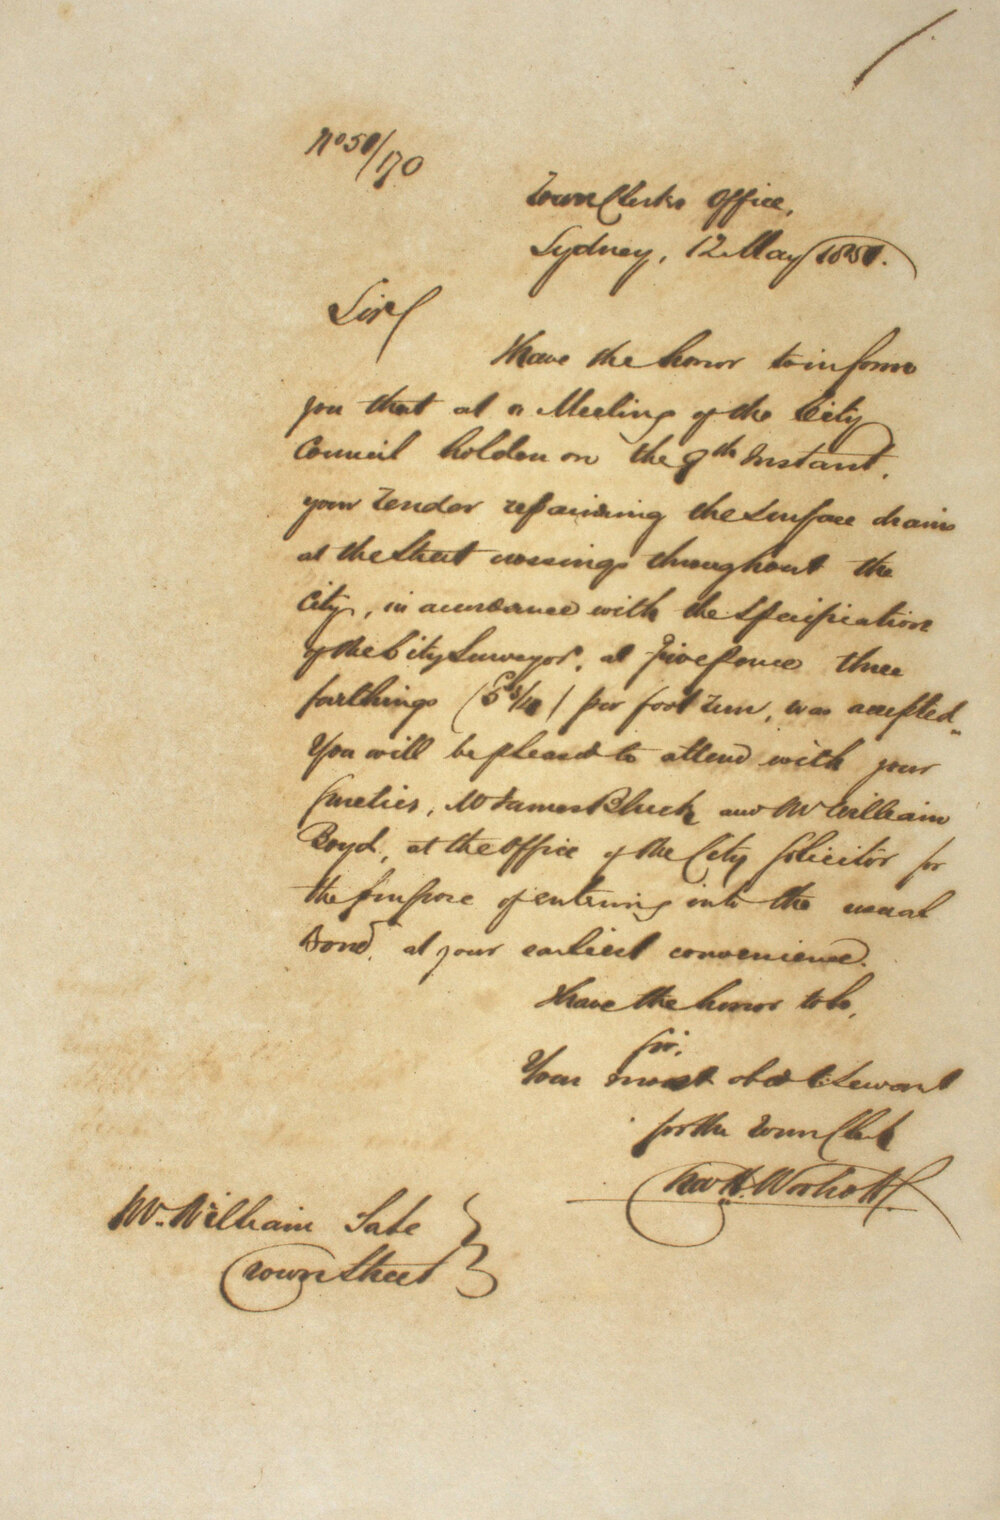 No 50/170
Town Clerks Office,
Sydney, 12 May 1850.
Sir
I have the honor to inform
you that at a Meeting of the City
Council holden on the 9th Instant,
your Tender repairing the Surface drains
at the Street crossings throughout the
City, in accordance with the Specification
of the City Surveyor, at Five pence three
farthings (5 3/4) per foot run, was accepted.
You will be pleased to attend with your
Sureties, Mr James Bluck and Mr William
Boyd, at the office of the City Solicitor for
the purpose of entering into the usual
Bond, at your earliest convenience.
I have the honor to be,
Sir,
Your most obdt Servant
for the Town Clerk
Mr. William Tate
Crown Street